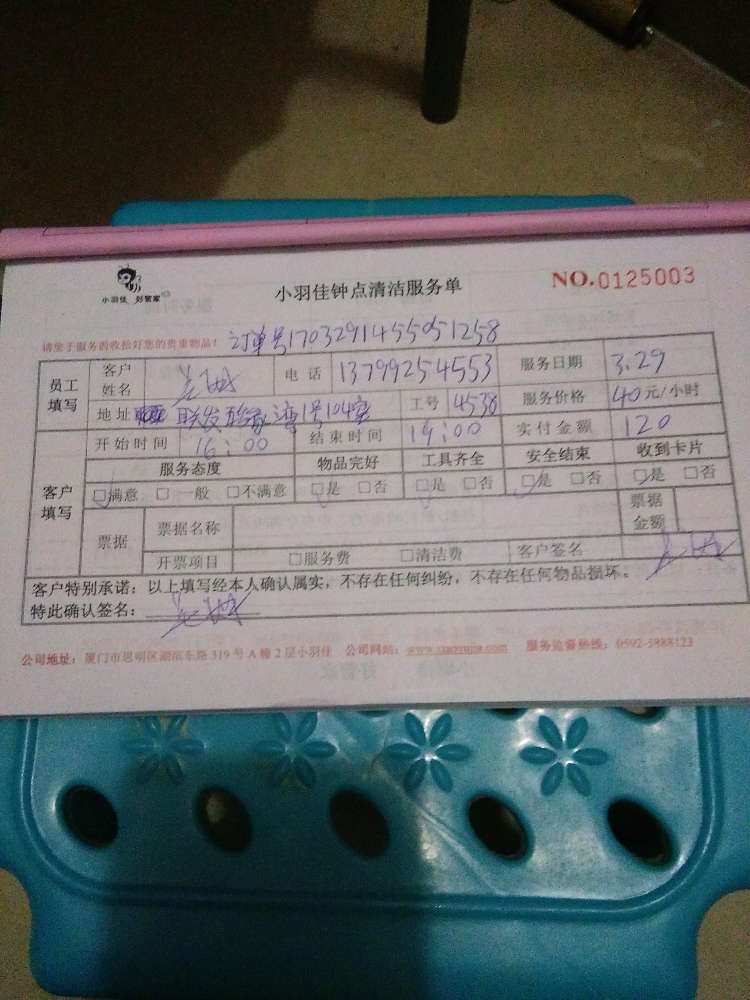 小羽佳 好管家
小羽佳钟点清洁服务单
NO.0125003
请您于服务前收拾好您的贵重物品!
订单号1703291455051258
员工填写 客户姓名 电话 13799254553 服务日期 3.29
地址 联发 湾1号104室 工号 4538 服务价格 40元/小时
客户填写 开始时间 16:00 结束时间 19:00 实付金额 120
服务态度 物品完好 工具齐全 安全结束 收到卡片
□满意 □一般 □不满意 □是 □否 □是 □否 □是 □否 □是 □否
票据 票据名称 票据金额
开票项目 □服务费 □清洁费 客户签名
客户特别承诺:以上填写经本人确认属实,不存在任何纠纷,不存在任何物品损坏。
特此确认签名:
公司地址:厦门市思明区湖滨东路319号A幢2层小羽佳 公司网站: 服务监督热线:0592-5988123